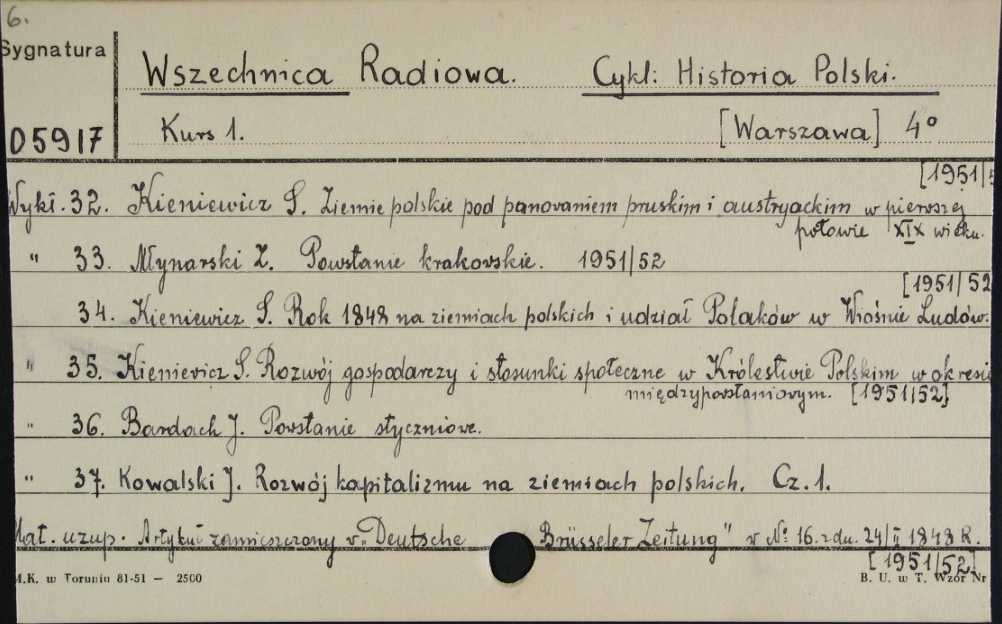 6.
Sygnatura
Wszechnica Radiowa. Cykl: Historia Polski.
05917
Kurs 1. [Warszawa] 4°
[1951/5
Wykł. 32. Kieniewicz S. Ziemie polskie pod panowaniem pruskim i austryackim w pierwszej
połowie XIX wieku.
" 33. Młynarski Z. Powstanie krakowskie. 1951/52
[1951/52
34. Kieniewicz S. Rok 1848 na ziemiach polskich i udział Polaków w Wiośnie Ludów.
" 35. Kieniewicz S. Rozwój gospodarczy i stosunki społeczne w Królestwie Polskim w okresie
międzypowstaniowym. [1951/52]
" 36. Bardach J. Powstanie styczniowe.
" 37. Kowalski J. Rozwój kapitalizmu na ziemiach polskich. Cz. 1.
Mat. uzup. Artykuł zamieszczony w „Deutsche Brüsseler Zeitung" w N° 16. z dn. 24/II 1848 R.
[1951/52]
M.K. w Toruniu 81-51 — 2500
B. U. w T. Wzór Nr